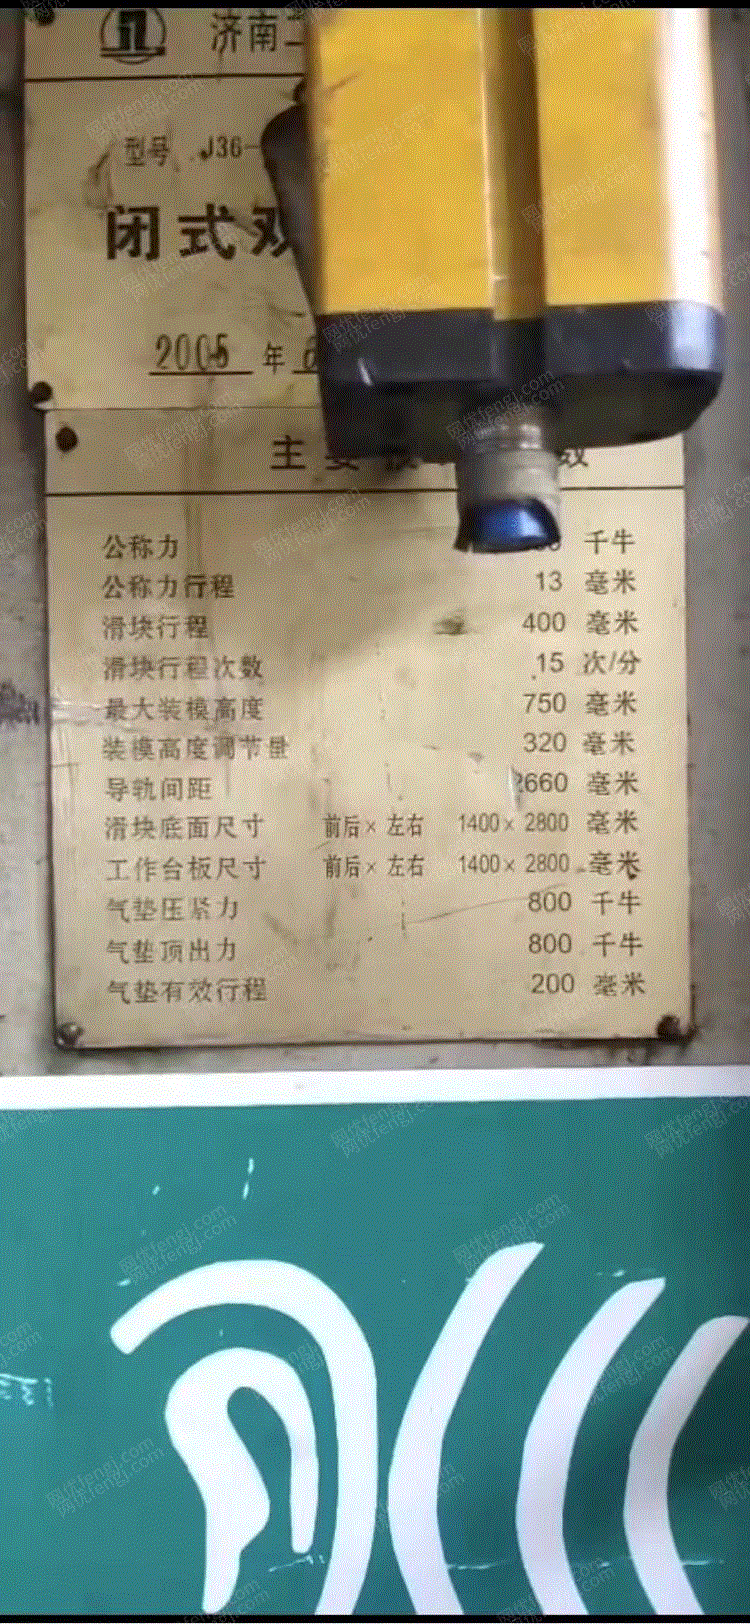 济南
型号 J36-
闭式双
2005 年 6
主要
公称力 千牛
公称力行程 13 毫米
滑块行程 400 毫米
滑块行程次数 15 次/分
最大装模高度 750 毫米
装模高度调节量 320 毫米
导轨间距 2660 毫米
滑块底面尺寸 前后× 左右 1400× 2800 毫米
工作台板尺寸 前后× 左右 1400× 2800 毫米
气垫压紧力 800 千牛
气垫顶出力 800 千牛
气垫有效行程 200 毫米
网优fengj.com